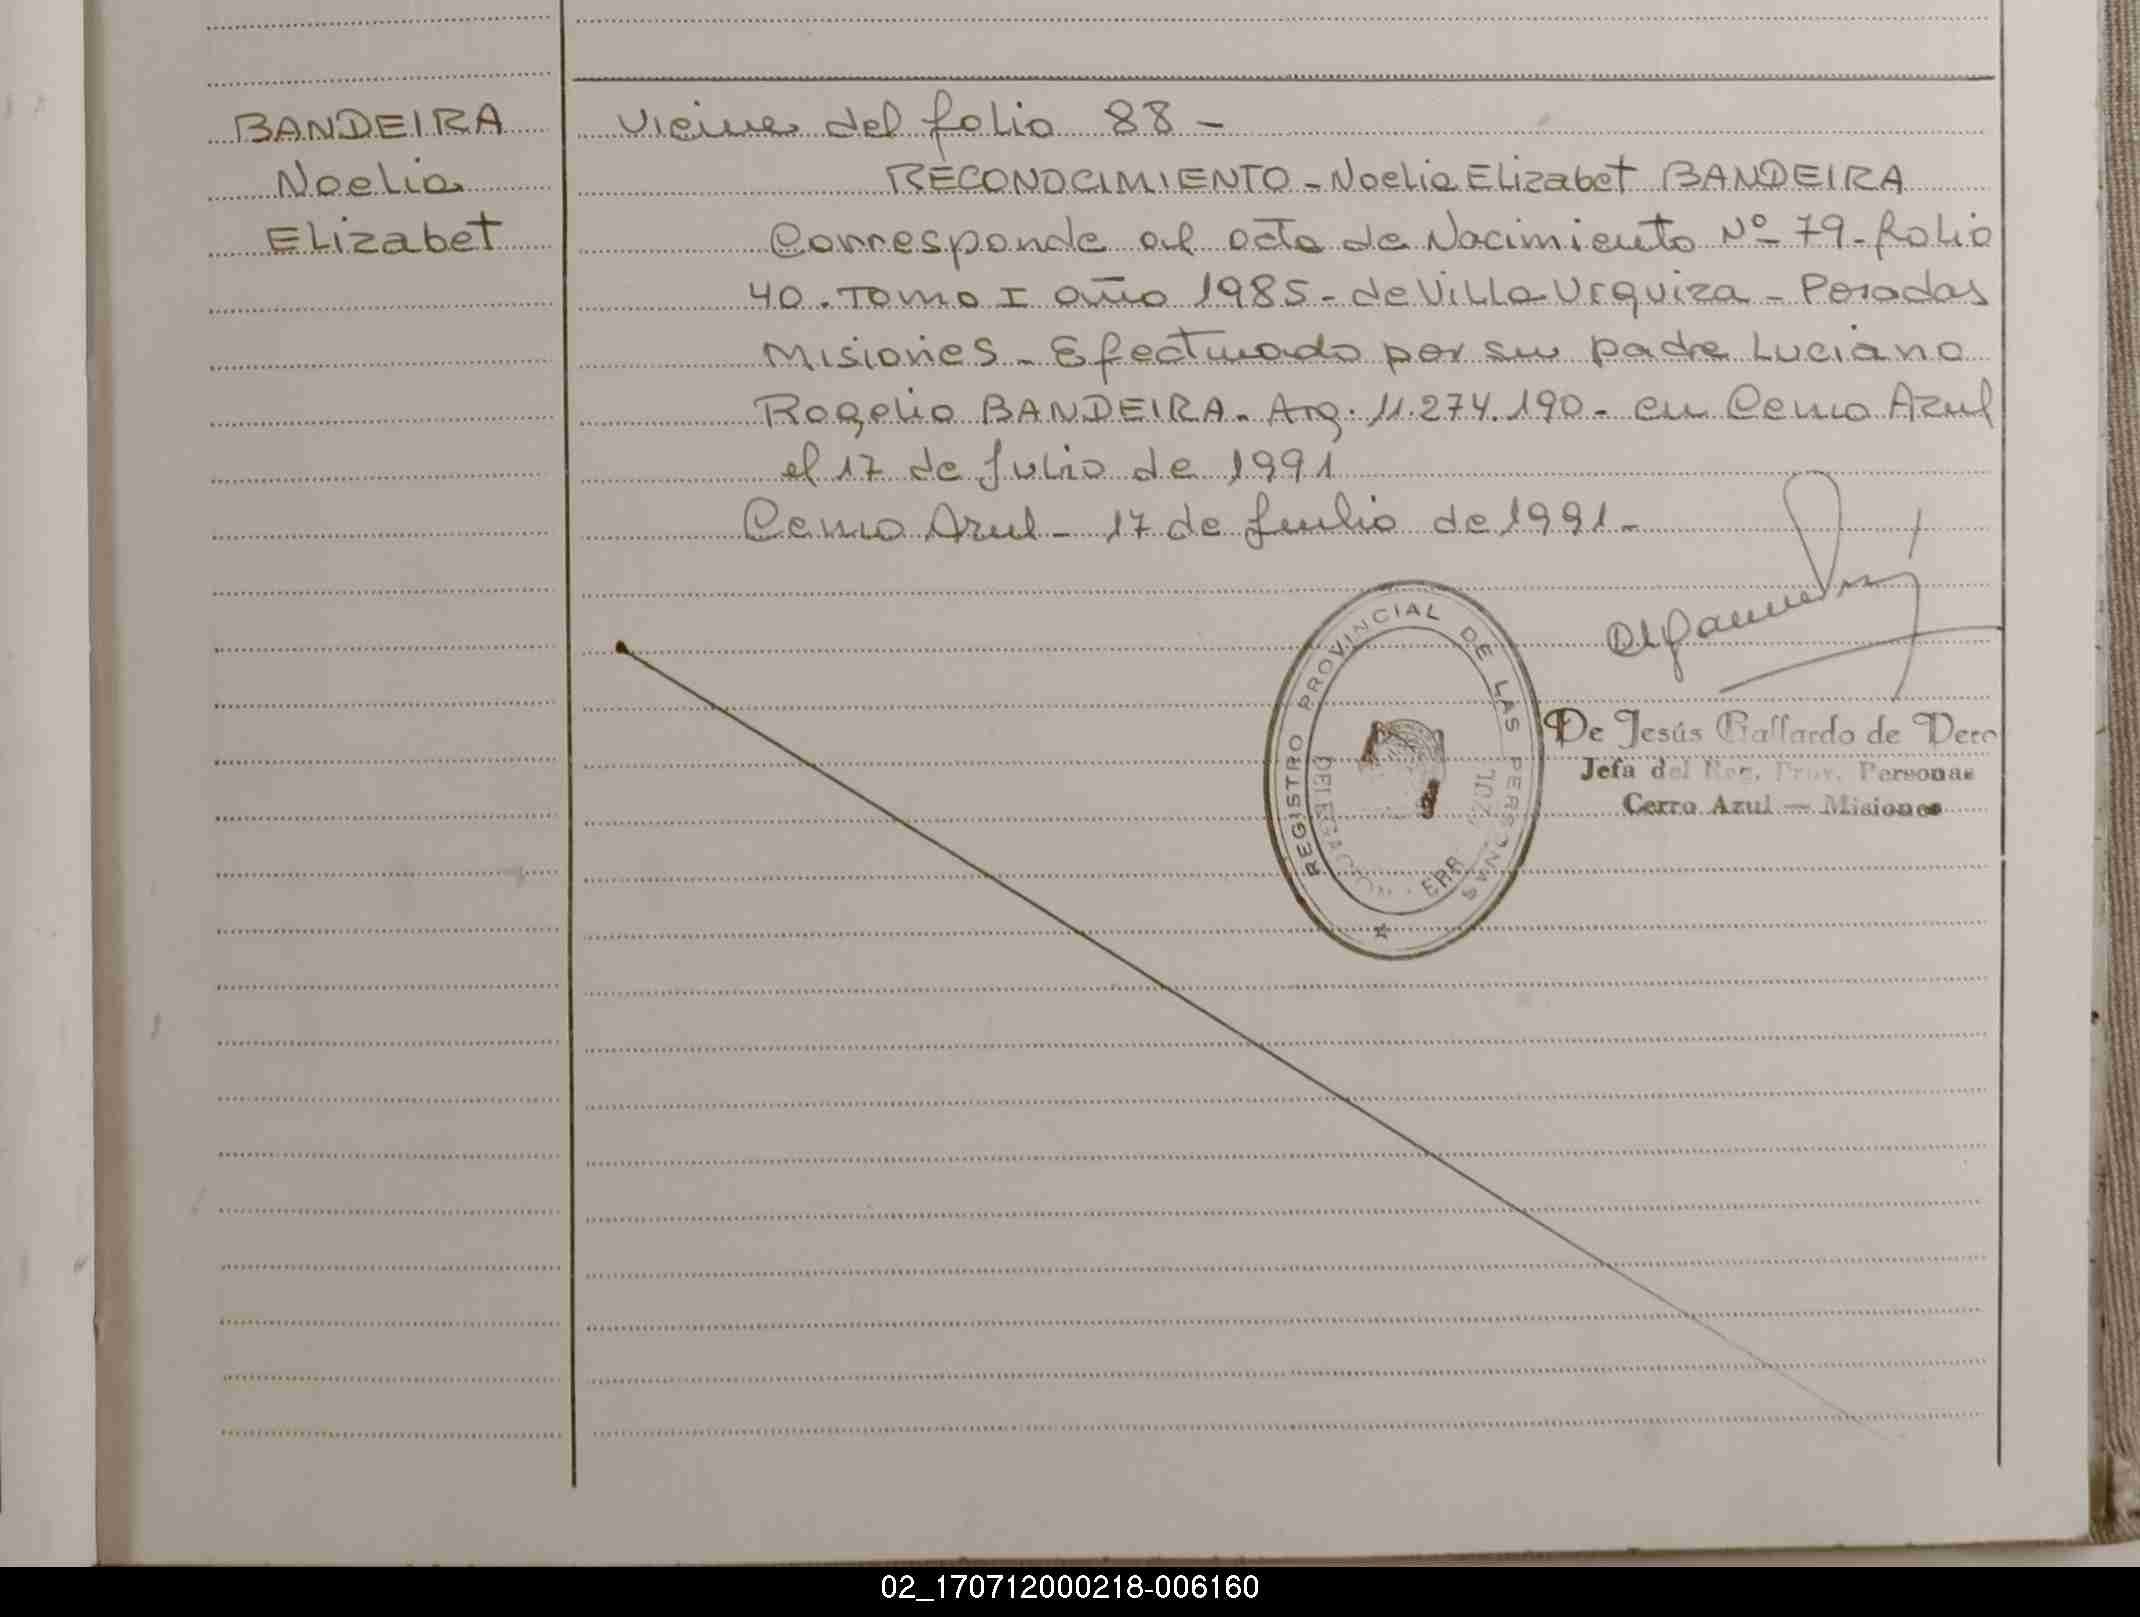 BANDEIRA
Noelia
Elizabet
Viene del folio 88 -
RECONOCIMIENTO - Noelia Elizabet BANDEIRA
Corresponde al acta de Nacimiento Nº 79 - folio
40. Tomo I año 1985 - de Villa Urquiza - Posadas
Misiones - Efectuado por su padre Luciano
Rogelio BANDEIRA. Arg. 11.274.190 - en Cerro Azul
el 17 de Julio de 1991
Cerro Azul - 17 de Julio de 1991 -
REGISTRO PROVINCIAL DE LAS PERSONAS
DELEGACION
De Jesús Gallardo de Vero
Jefa del Reg. Prov. Personas
Cerro Azul — Misiones
02_170712000218-006160